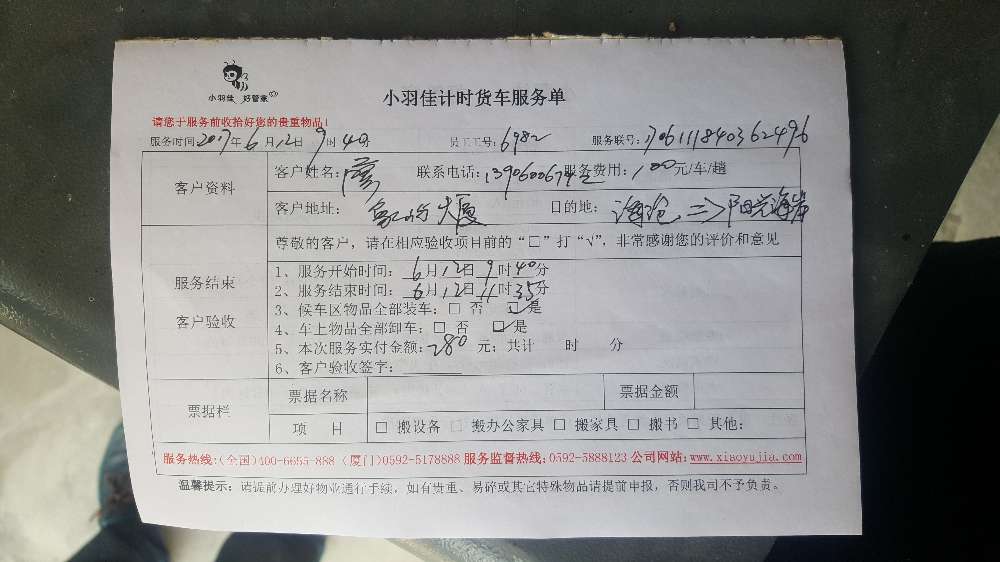 小羽佳 好管家
小羽佳计时货车服务单
请您于服务前收拾好您的贵重物品!
服务时间2017年6月12日9时40分 员工工号:6982 服务联号:
客户资料
客户姓名:廖 联系电话: 服务费用:100元/车/趟
客户地址: 大厦 目的地:海沧 => 阳光海岸
尊敬的客户,请在相应验收项目前的“□”打“√”,非常感谢您的评价和意见
服务结束
客户验收
1、服务开始时间:6月12日9时40分
2、服务结束时间:6月12日11时35分
3、候车区物品全部装车:□ 否 ☑是
4、车上物品全部卸车:□ 否 ☑是
5、本次服务实付金额:280 元;共计 时 分
6、客户验收签字:
票据栏
票据名称 票据金额
项 目 □ 搬设备 □ 搬办公家具 □ 搬家具 □ 搬书 □ 其他:
服务热线:(全国)400-6655-888 (厦门)0592-5178888 服务监督热线:0592-5888123 公司网站:www.xiaoyujia.com
温馨提示:请提前办理好物业通行手续,如有贵重、易碎或其它特殊物品请提前申报,否则我司不予负责。